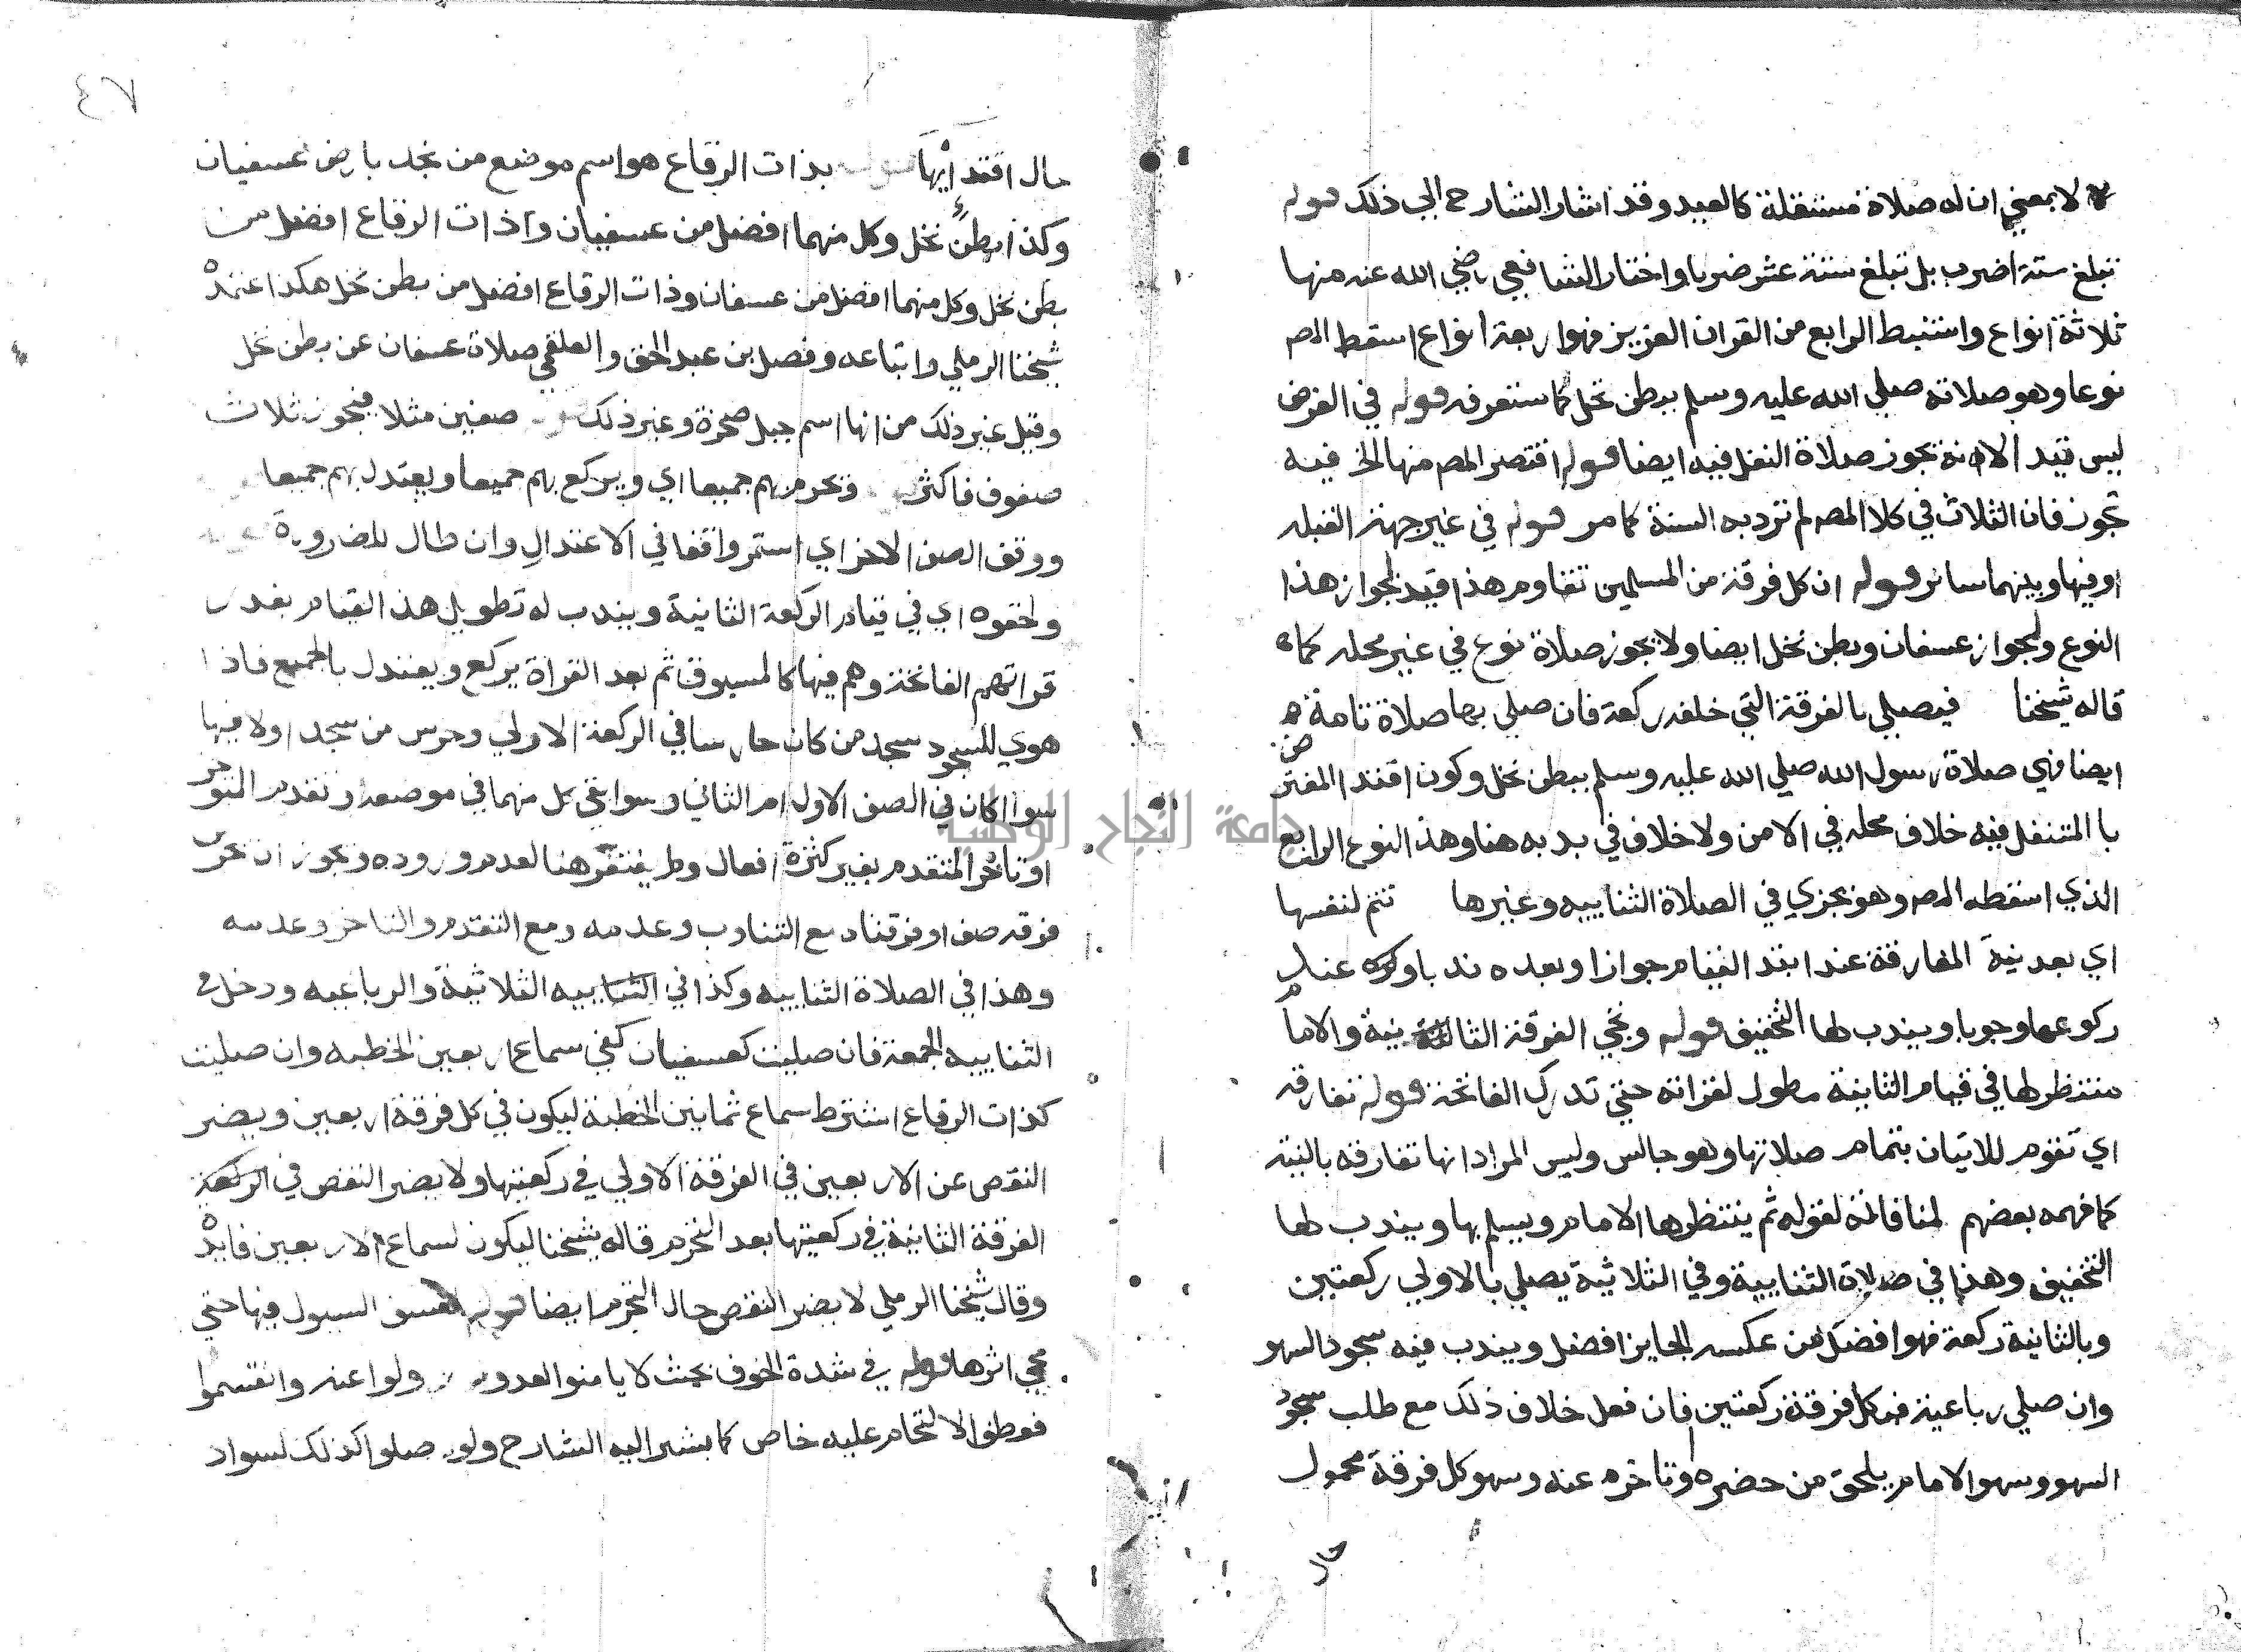 لا بمعني ان له صلاة مستقلة كالعيد وقد اشار الشارح الي ذلك قوله
تبلغ ستة اضرب بل تبلغ ستة عشر ضربا واختار الشافعي رضي الله عنه منها
ثلاثة انواع واستنبط الرابع من القران العزيز فهو اربعة انواع اسقط المص
نوعا وهو صلاته صلي الله عليه وسلم ببطن نخل كما ستعرفه قوله في الفرض
ليس قيد الانه تجوز صلاة النفل فيه ايضا قوله اقتصر المص منها الخ فيه
تجوز فان الثلاث في كلا المص لم ترد به السنة كما مر قوله في غير جهة القبله
او فيها وبينهما ساتر قوله ان كل فرقة من المسلمين تقاوم هذا قيد لجواز هذا
النوع ولجواز عسفان وبطن نخل ايضا ولا تجوز صلاة نوع في غير محله كما
قاله شيخنا فيصلي بالفرقة التي خلفه ركعة فان صلي بها صلاة تامة
ايضا فهي صلاة رسول الله صلي الله عليه وسلم ببطن نخل وكون اقتدا المفترض
با المتنفل فيه خلاف محله في الامن ولا خلاف في بد به هنا وهذ النوع الرابع
الذي اسقطه المص وهو يجزي في الصلاة الثناييه وغيرها تتم لنفسها
اي بعد نية المفارقة عند ابتد القيام جوازا وبعده ند با وكره عند
ركوعها وجوبا ويندب لها التخفيف قوله وتجي الفرقة الثانية والامام
منتظر لها في قيام الثانية مطول لقراته حتي تدرك الفاتحة قوله تفارقه
اي تقوم للاتيان بتمام صلاتها وهو جالس وليس المراد انها تفارقه بالنية
كما فهمه بعضهم لمنافاته لقوله ثم ينتظرها الامام ويسلم بها ويندب لها
التخفيف وهذا في صلاة الثناييية وفي الثلاثية يصلي بالاولي ركعتين
وبالثانية ركعة فهو افضل من عكسه الجايز افضل ويندب فيه سجود السهو
وان صلي رباعية فبكل فرقة ركعتين فان فعل خلاف ذلك مع طلب سجود
السهو وسهو الامام يلحق من حضره وتاخره عنه وسهو كل فرقة محمول
حال
٤٧
حال اقتدايها قوله بذات الرقاع هو اسم موضع من نجد بارض عسفيان
وكذا بطن نخل وكل منهما افضل من عسفيان وذات الرقاع افضل من
بطن نخل وكل منهما افضل من عسفان وذات الرقاع افضل من بطن نخل هكذا اعتمده
شيخنا الرملي واتباعه وفضل بن عبد الحق والعلقمي صلاة عسفان عن بطن نخل
وقيل غير ذلك من انها اسم جبل صخرة وغير ذلك قوله صفين مثلا فيجوز ثلاث
صفوف فاكثر ويحرم بهم جميعا اي ويركع بهم جميعا ويعتدل بهم جميعا
ووقف الصف الاخر اي استمر واقفا في الاعتدال وان طال للضرورة
ولحقوه اي في قيام الركعة الثانية ويندب له تطويل هذ القيام بقدر
قراتهم الفاتحة وهم فيها كالمسبوق ثم بعد القراة يركع ويعتدل بالجميع فاذا
هوي للسجود سجد من كان حارسا في الركعة الاولي وحرس من سجد اولا فيها
سوا اكان في الصف الاول ام الثاني وسوا بقي كل منهما في موضعه او تقدم الموخر
او تاخر المتقدم بغير كثرة افعال ولم يغتفر هنا لعدم وروده ويجوز ان تحرس
فرقه صف او فرقتاه مع التناوب وعدمه ومع التقدم والتاخر وعدمه
وهذا في الصلاة الثناييه وكذا في الثلاثية والرباعيه ودخل في
الثناييه الجمعة فان صليت كعسفيان كفي سماع اربعين الخطبه وان صليت
كذات الرقاع اشترط سماع ثمانين الخطبة ليكون في كل فرقة اربعين ويضر
النقص عن الاربعين في الفرقة الاولي في ركعتها ولا يضر النقص في الركعة
الفرقة الثانية في ركعتها بعد التحرم قاله شيخنا ليكون لسماع الاربعين فايدة
وقال شيخنا الرملي لا يضر النقص حال التحرم ايضا قوله السيول فيها حتي
عفي اثرها قوله في شدة الخوف بحيث لا يامنوا العدو ولوا عنه وانقسموا
فعطف الالتحام عليه خاص كما يشير اليه الشارح ولو صلوا كذلك لسواد
جامعة النجاح الوطنية